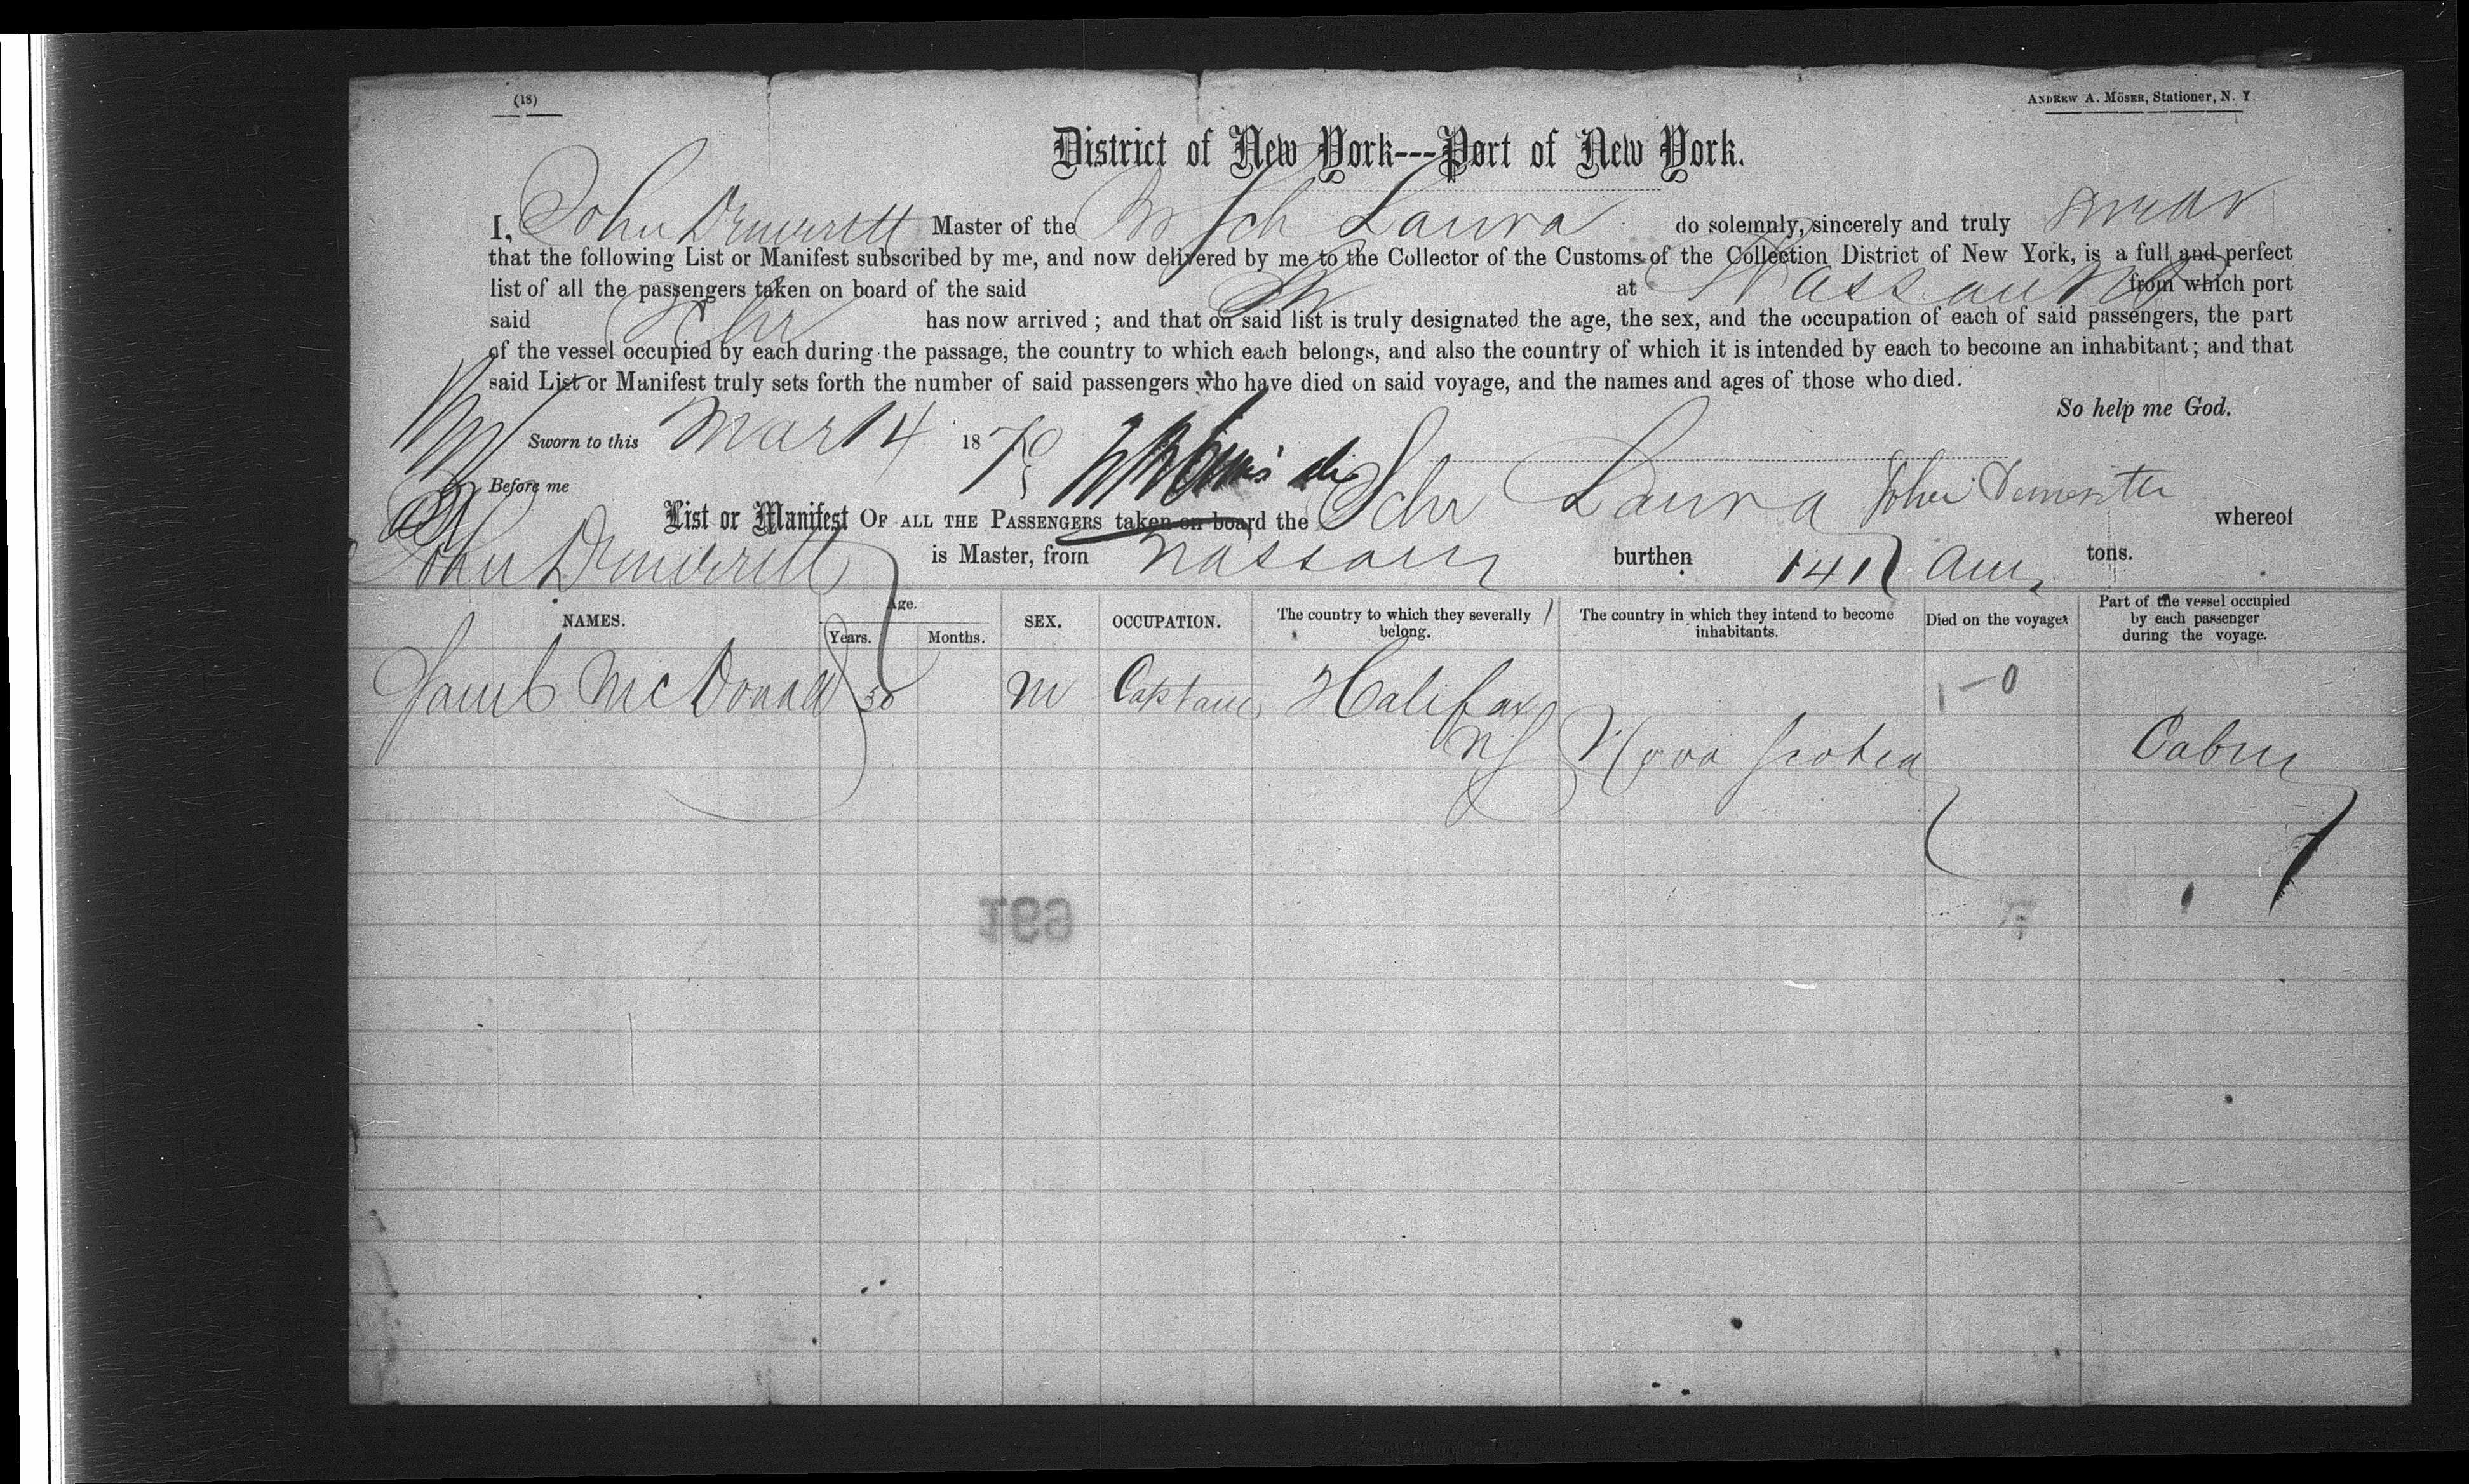 (18)
ANDREW A. MÖSER, Stationer, N. Y.
District of New York---Port of New York.
I, John Master of the Sch Laura do solemnly, sincerely and truly swear
that the following List or Manifest subscribed by me, and now delivered by me to the Collector of the Customs of the Collection District of New York, is a full and perfect
list of all the passengers taken on board of the said at Nassau from which port
said Schr has now arrived ; and that on said list is truly designated the age, the sex, and the occupation of each of said passengers, the part
of the vessel occupied by each during the passage, the country to which each belongs, and also the country of which it is intended by each to become an inhabitant ; and that
said List or Manifest truly sets forth the number of said passengers who have died on said voyage, and the names and ages of those who died.
So help me God.
Sworn to this Mar 14 18
Before me
List or Manifest OF ALL THE PASSENGERS taken on board the Schr Laura whereof
John is Master, from Nassau burthen 141 tons.
NAMES. Age. Years. Months. SEX. OCCUPATION. The country to which they severally belong. The country in which they intend to become inhabitants. Died on the voyage. Part of the vessel occupied by each passenger during the voyage.
McDonald 50 M Captain Halifax
NS Nova Scotia Cabin
169